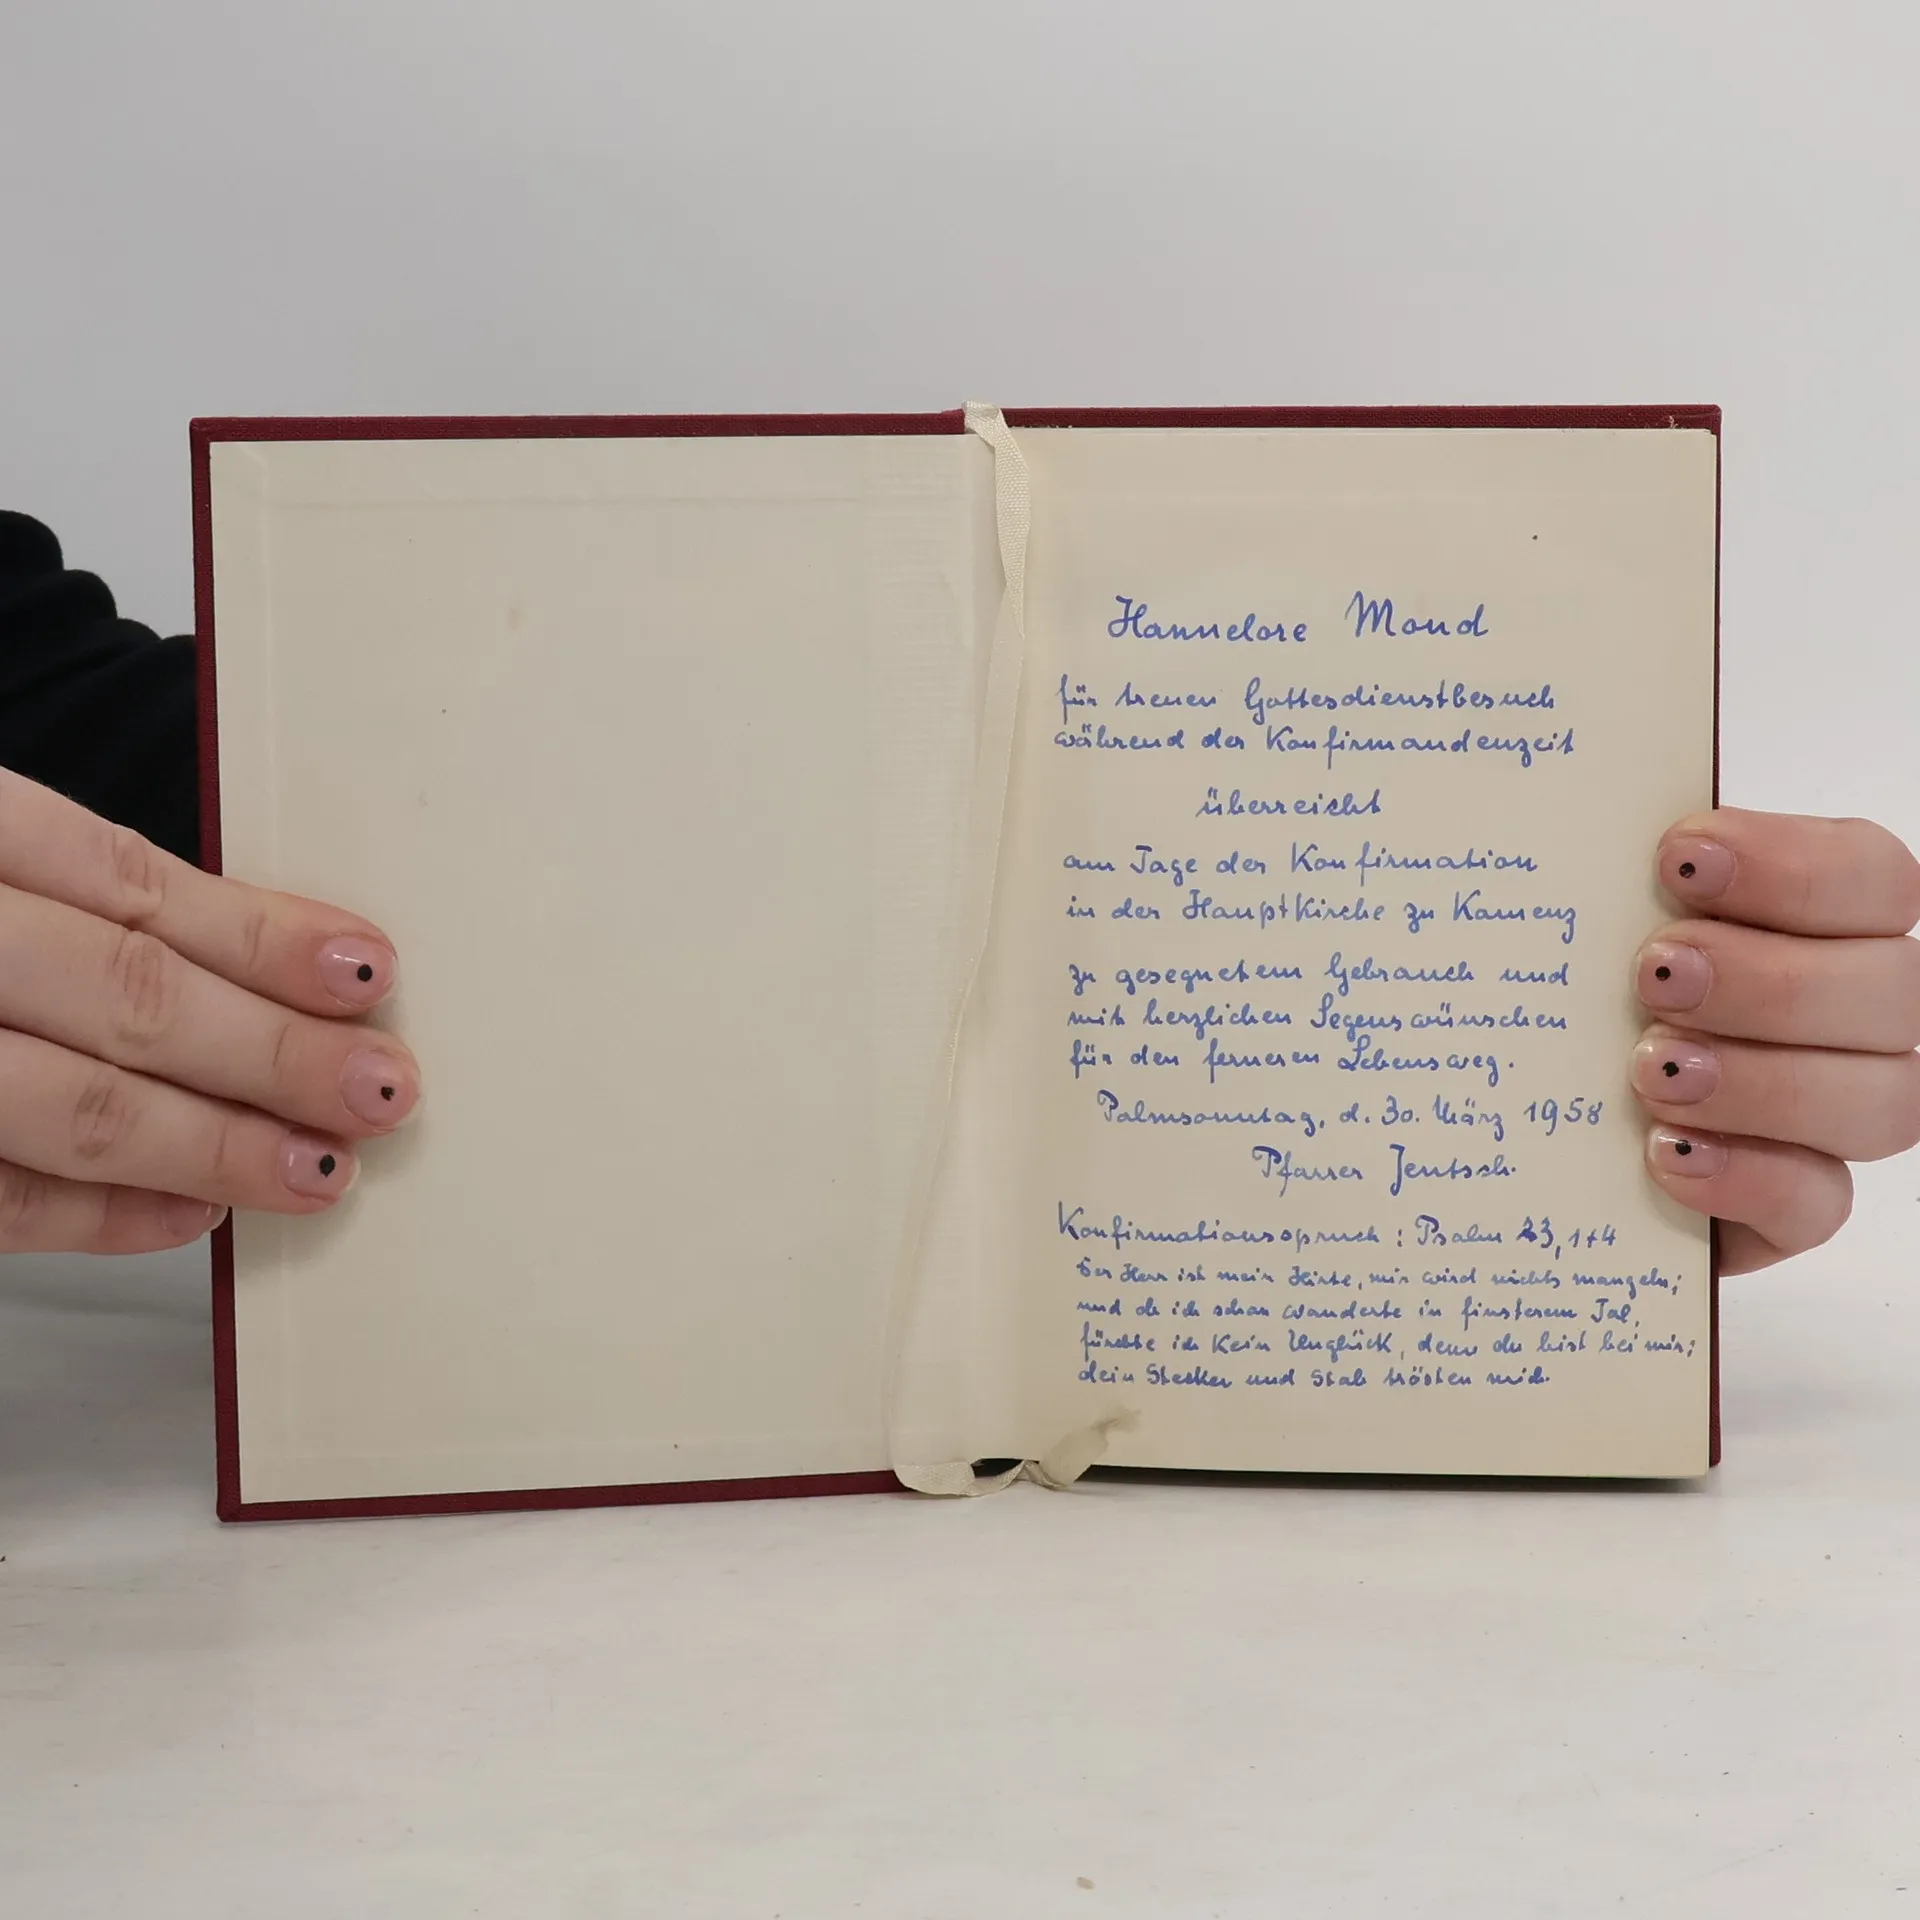 Hannelore Mond
für treuen Gottesdienstbesuch
während der Konfirmandenzeit
überreicht
am Tage der Konfirmation
in der Hauptkirche zu Kamenz
zu gesegnetem Gebrauch und
mit herzlichen Segenswünschen
für den ferneren Lebensweg.
Palmsonntag, d. 30. März 1958
Pfarrer Jentsch.
Konfirmationsspruch: Psalm 23, 1+4
Der Herr ist mein Hirte, mir wird nichts mangeln;
und ob ich schon wanderte in finsterem Tal,
fürchte ich kein Unglück, denn du bist bei mir;
dein Stecken und Stab trösten mich.